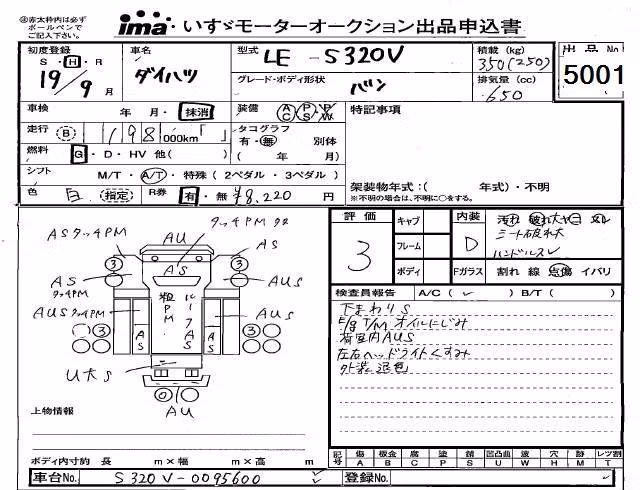 ④赤太枠内は必ず
ボールペンで
ご記入下さい。
ima いすゞモーターオークション出品申込書
初度登録 車名 型式 LE - S320V 積載 (kg) 出品No.
S・H・R 19/9月 ダイハツ 350(250)
グレード・ボディ形状 バン 排気量 (cc) 650 5001
車検 年 月・抹消 装備 A/C P/S P/W 特記事項
走行 (B) 198 000km「 」 タコグラフ
有・無 別体
燃料 G・D・HV 他( ) ( 年 月)
シフト M/T・A/T・特殊(2ペダル・3ペダル) 架装物年式:( 年式)・不明
色 白 (指定) R券 有・無 ¥8,220 円 ※不明の場合は、不明に○をする。
評価 3 キャブ 内装 D 汚れ 破れ大 ヤニ スレ
フレーム シート破れ大
ハンドルスレ
ボディ Fガラス 割れ 線 点傷 イバリ
タッチPM
ASタッチPM AU AS
3 AS 3
AS AUS
タッチPM
AUSタッチPM 粗PM. ルーフAS AUS
3 AS AS 3
U大S
0
AU
検査員報告 A/C( ✓ ) B/T( )
下まわりS
E/g T/M オイルにじみ
荷室内AUS
左右ヘッドライトくすみ
外装退色
上物情報
記号 傷 板金 腐 塗 錆 凹凸曲 波 穴 跡 レツ割
A B C P S U W H M T
ボディ内寸約 長 m×幅 m×高 m
車台No. S320V-0095600 登録No.